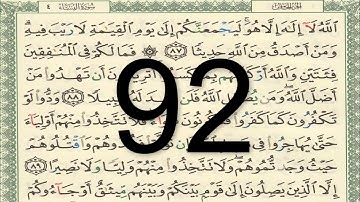 سورة النساء ٤
الله لا إله إلا هو ليجمعنكم إلى يوم القيمة لا ريب فيه
ومن أصدق من الله حديثا ٨٧ فما لكم في المنفقين
فئتين والله أركسهم أتريدون أن تهدوا من
أضل الله ومن يضلل الله فلن سبيلا ٨٨ ودوا لو
تكفرون كما كفروا فلا تتخذوا منهم أولياء
حتى يهاجروا في واقتلوهم
حيث وجدتموهم ولا تتخذوا منهم وليا ولا نصيرا ٨٩
إلا الذين يصلون إلى قوم بينكم وبينهم ميثق أو جاءوكم
92